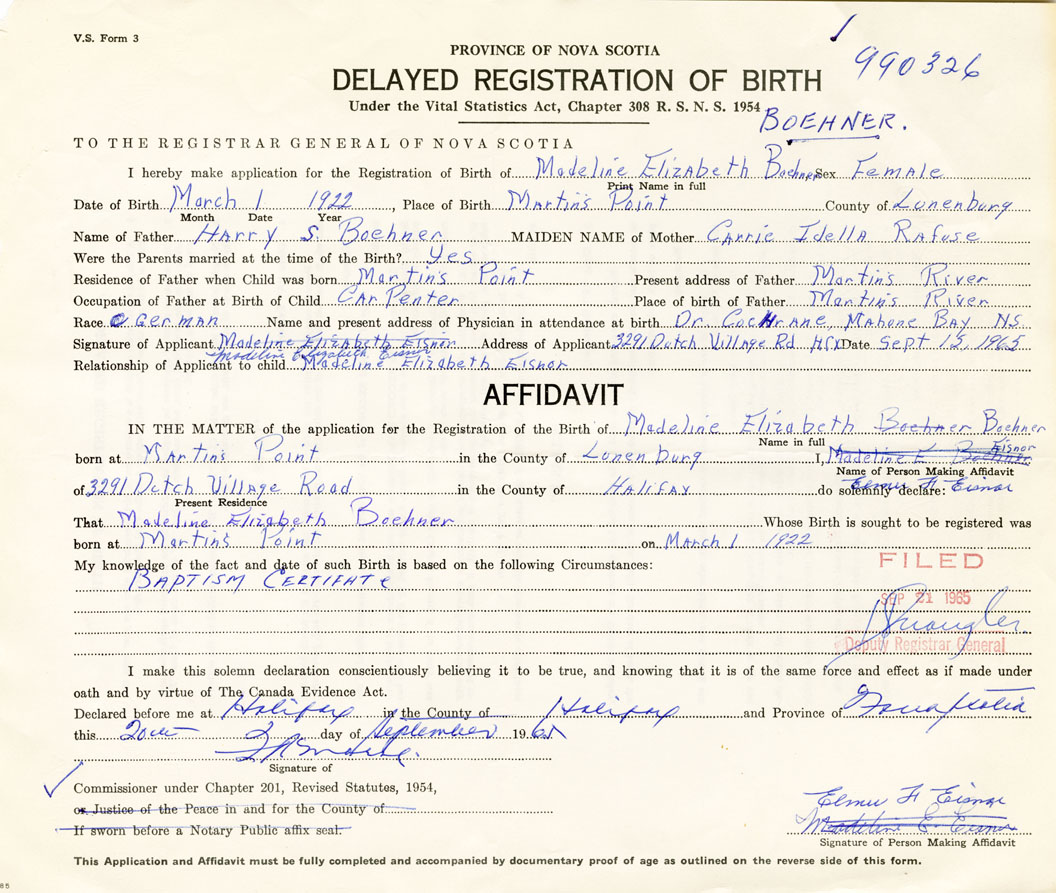 V.S. Form 3
990326
PROVINCE OF NOVA SCOTIA
DELAYED REGISTRATION OF BIRTH
Under the Vital Statistics Act, Chapter 308 R. S. N. S. 1954
BOEHNER.
TO THE REGISTRAR GENERAL OF NOVA SCOTIA
I hereby make application for the Registration of Birth of Madeline Elizabeth Boehner Sex Female
Print Name in full
Date of Birth March 1 1922, Place of Birth Martin's Point County of Lunenburg
Month Date Year
Name of Father Harry S. Boehner MAIDEN NAME of Mother Carrie Idella Rafuse
Were the Parents married at the time of the Birth? Yes
Residence of Father when Child was born Martin's Point Present address of Father Martin's River
Occupation of Father at Birth of Child Carpenter Place of birth of Father Martin's River
Race German Name and present address of Physician in attendance at birth Dr. Cochrane, Mahone Bay NS
Signature of Applicant Madeline Elizabeth Eisnor Address of Applicant 3291 Dutch Village Rd Hfx Date Sept 15, 1965
Madeline Elizabeth Eisnor
Relationship of Applicant to child Madeline Elizabeth Eisnor
AFFIDAVIT
IN THE MATTER of the application for the Registration of the Birth of Madeline Elizabeth Boehner Boehner
Name in full
Eisnor
born at Martin's Point in the County of Lunenburg I, Madeline E Boehner
Name of Person Making Affidavit
Elmer H Eisnor
of 3291 Dutch Village Road in the County of Halifax do solemnly declare:
Present Residence
That Madeline Elizabeth Boehner Whose Birth is sought to be registered was
born at Martin's Point on March 1 1922
My knowledge of the fact and date of such Birth is based on the following Circumstances:
FILED
Baptism Certifhte
SEP 21 1965
Deputy Registrar General
I make this solemn declaration conscientiously believing it to be true, and knowing that it is of the same force and effect as if made under
oath and by virtue of The Canada Evidence Act.
Declared before me at Halifax in the County of Halifax and Province of Nova Scotia
this 20th day of September 1965
Signature of
Commissioner under Chapter 201, Revised Statutes, 1954,
or Justice of the Peace in and for the County of
If sworn before a Notary Public affix seal.
Elmer H Eisnor
Madeline E. Eisnor
Signature of Person Making Affidavit
This Application and Affidavit must be fully completed and accompanied by documentary proof of age as outlined on the reverse side of this form.